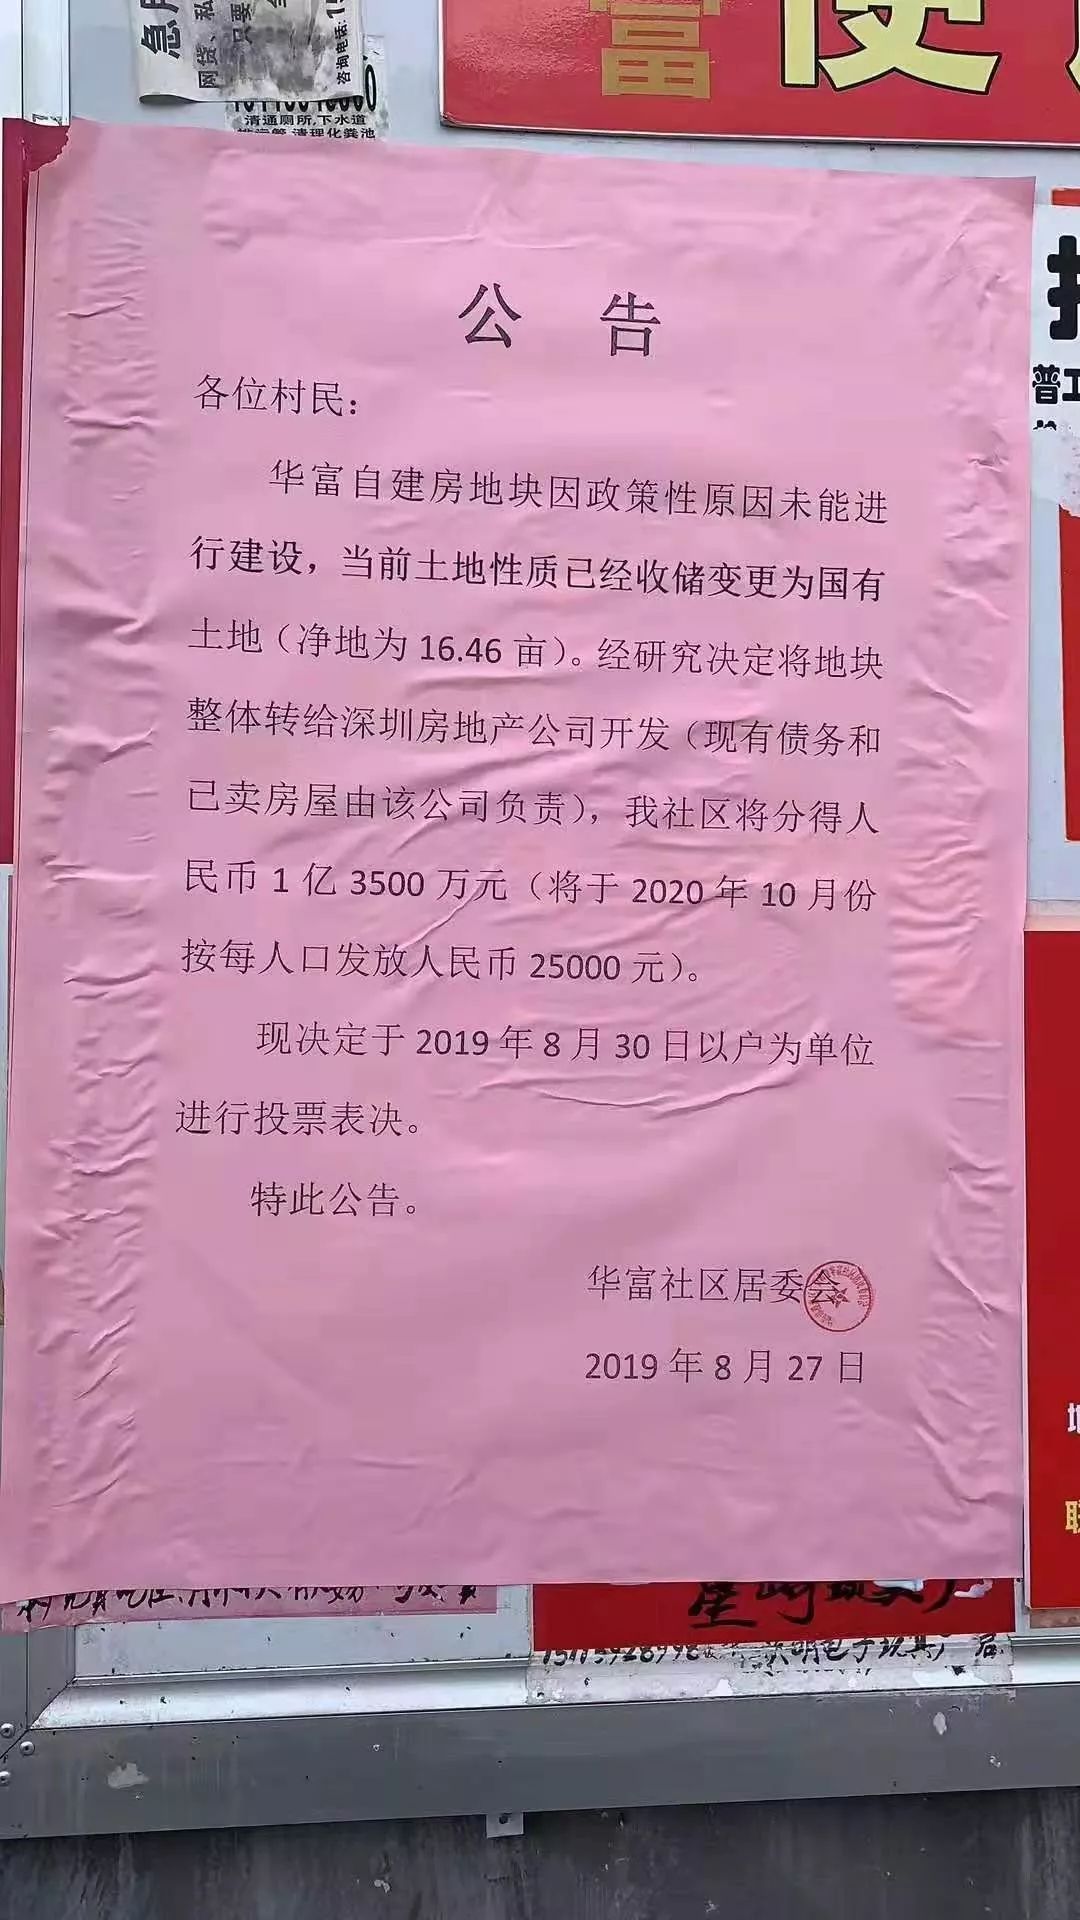 急用
网贷、私
只要
咨询电话:15
清通厕所,下水道
清理化粪池
富
便
普工
公 告
各位村民：
华富自建房地块因政策性原因未能进
行建设，当前土地性质已经收储变更为国有
土地（净地为 16.46 亩）。经研究决定将地块
整体转给深圳房地产公司开发（现有债务和
已卖房屋由该公司负责），我社区将分得人
民币 1 亿 3500 万元（将于 2020 年 10 月份
按每人口发放人民币 25000 元）。
现决定于 2019 年 8 月 30 日以户为单位
进行投票表决。
特此公告。
华富社区居委会
2019 年 8 月 27 日